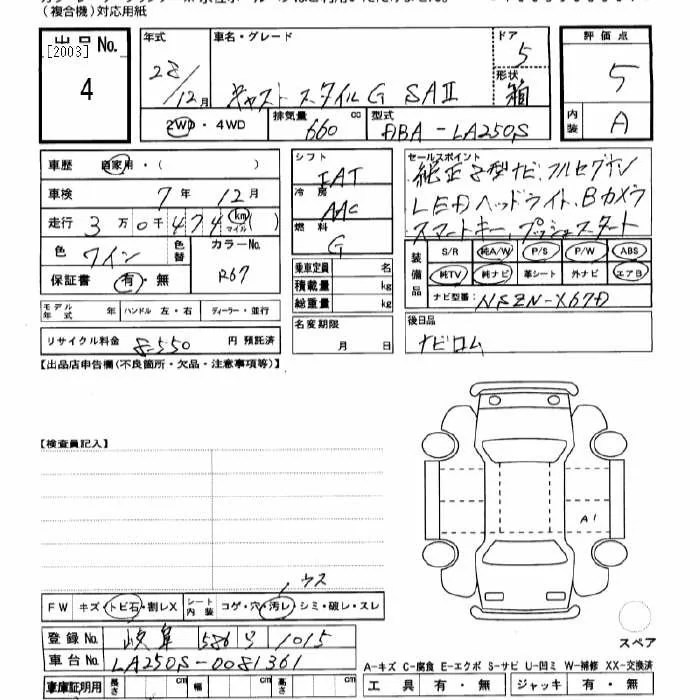 (複合機)対応用紙
出品 No. [2003] 4
年式 28/12月
車名・グレード キャスト スタイルG SAⅡ
ドア 5
形状 箱
評価点 5
内装 A
2WD・4WD
排気量 660 cc
型式 DBA-LA250S
車歴 自家用・( )
車検 7年 12月
走行 3万0千474 km マイル ( )
色 ワイン
色替
カラーNo. R67
保証書 有・無
シフト FAT
冷房 AAC
燃料 G
乗車定員 名
積載量 kg
総重量 kg
名変期限 月 日
セールスポイント
純正8型ナビ、フルセグTV
LEDヘッドライト、Bカメラ
スマートキー、プッシュスタート
装備品
S/R 純A/W P/S P/W ABS
純TV 純ナビ 革シート 外ナビ エアB
ナビ型番 NSZN-X67D
後日品
ナビロム
モデル年式 年 ハンドル 左・右 ディーラー・並行
リサイクル料金 8,550 円 預託済
【出品店申告欄(不良箇所・欠品・注意事項等)】
【検査員記入】
A1
ウス
FW キズ・トビ石・割レX シート内装 コゲ・穴・汚レ・シミ・破レ・スレ
登録 No. 岐阜 586 う 1015
車台 No. LA250S-0081361
車庫証明用 長さ cm 幅 cm 高さ cm
スペア
A-キズ C-腐食 E-エクボ S-サビ U-凹ミ W-補修 XX-交換済
工具 有・無 ジャッキ 有・無